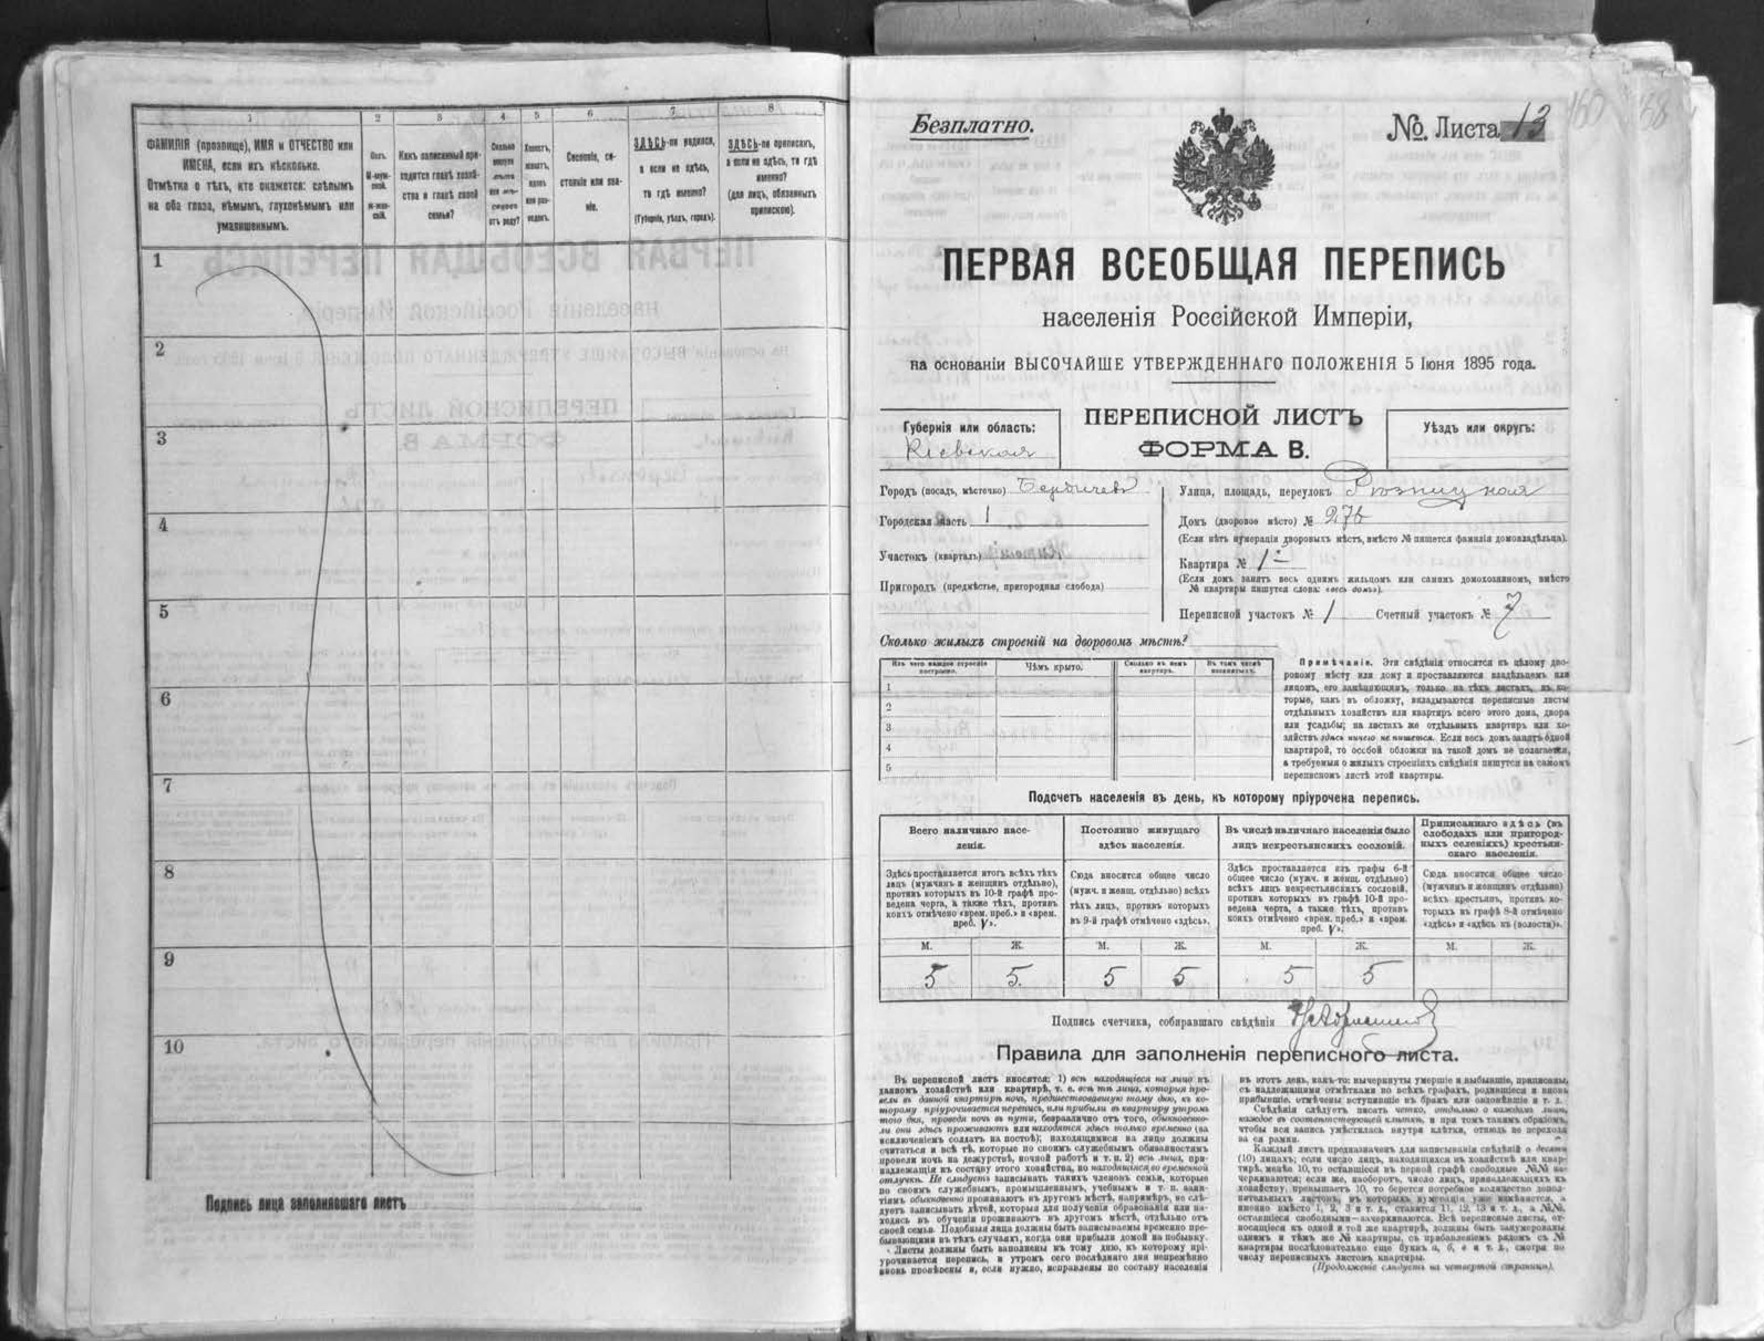 1
2
3
4
5
6
7
8
ФАМИЛІЯ (прозвище), ИМЯ и ОТЧЕСТВО или
ИМЕНА, если ихъ нѣсколько.
Отмѣтка о тѣхъ, кто окажется: слѣпымъ
на оба глаза, нѣмымъ, глухонѣмымъ или
умалишеннымъ.
Полъ.
М-муж-
ской.
Ж-жен-
скій.
Какъ записанный при-
ходится главѣ хозяй-
ства и главѣ своей
семьи?
Сколько
минуло
лѣтъ
или мѣ-
сяцевъ
отъ роду?
Холостъ,
женатъ,
вдовъ
или раз-
веденъ.
Сословіе, со-
стояніе или зва-
ніе.
ЗДѢСЬ-ли родился,
а если не здѣсь,
то гдѣ именно?
(Губернія, уѣздъ, городъ).
ЗДѢСЬ-ли приписанъ,
а если не здѣсь, то гдѣ
именно?
(для лицъ, обязанныхъ
припискою).
1
2
3
4
5
6
7
8
9
10
Подпись лица заполнявшаго листъ
Безплатно.
№ Листа 13
ПЕРВАЯ ВСЕОБЩАЯ ПЕРЕПИСЬ
населенія Россійской Имперіи,
на основаніи ВЫСОЧАЙШЕ УТВЕРЖДЕННАГО ПОЛОЖЕНІЯ 5 Іюня 1895 года.
Губернія или область:
Кіевская
ПЕРЕПИСНОЙ ЛИСТЪ
ФОРМА В.
Уѣздъ или округъ:
Городъ (посадъ, мѣстечко) Бердичевъ
Городская часть 1
Участокъ (кварталъ)
Пригородъ (предмѣстье, пригородная слобода)
Улица, площадь, переулокъ
Домъ (дворовое мѣсто) № 276
(Если нѣтъ нумераціи дворовыхъ мѣстъ, вмѣсто № пишется фамилія домовладѣльца).
Квартира № 1
(Если домъ занятъ весь однимъ жильцомъ или самимъ домохозяиномъ, вмѣсто
№ квартиры пишутся слова: «весь домъ»).
Переписной участокъ № 1 Счетный участокъ № 7
Сколько жилыхъ строеній на дворовомъ мѣстѣ?
Изъ чего каждое строеніе
построено.
Чѣмъ крыто.
Сколько въ немъ
квартиръ.
Въ томъ числѣ
незанятыхъ.
1
2
3
4
5
Примѣчаніе. Эти свѣдѣнія относятся къ цѣлому дво-
ровому мѣсту или дому и проставляются владѣльцемъ или
лицомъ, его замѣняющимъ, только на тѣхъ листахъ, въ ко-
торые, какъ въ обложку, вкладываются переписные листы
отдѣльныхъ хозяйствъ или квартиръ всего этого дома, двора
или усадьбы; на листахъ же отдѣльныхъ квартиръ или хо-
зяйствъ здѣсь ничего не пишется. Если весь домъ занятъ одной
квартирой, то особой обложки на такой домъ не полагается,
а требуемыя о жилыхъ строеніяхъ свѣдѣнія пишутся на самомъ
переписномъ листѣ этой квартиры.
Подсчетъ населенія въ день, къ которому пріурочена перепись.
Всего наличнаго насе-
ленія.
Постоянно живущаго
здѣсь населенія.
Въ числѣ наличнаго населенія было
лицъ некрестьянскихъ сословій.
Приписаннаго здѣсь (въ
слободахъ или пригород-
ныхъ селеніяхъ) крестьян-
скаго населенія.
Здѣсь проставляется итогъ всѣхъ тѣхъ
лицъ (мужчинъ и женщинъ отдѣльно),
противъ которыхъ въ 10-й графѣ про-
ведена черта, а также тѣхъ, противъ
коихъ отмѣчено «врем. преб.» и «врем.
преб. V».
Сюда вносится общее число
(мужч. и женщ. отдѣльно) всѣхъ
тѣхъ лицъ, противъ которыхъ
въ 9-й графѣ отмѣчено «здѣсь».
Здѣсь проставляется изъ графы 6-й
общее число (мужч. и женщ. отдѣльно)
всѣхъ лицъ некрестьянскихъ сословій,
противъ которыхъ въ графѣ 10-й про-
ведена черта, а также тѣхъ, противъ
коихъ отмѣчено «врем. преб.» и «врем.
преб. V».
Сюда вносится общее число
(мужчинъ и женщинъ отдѣльно)
всѣхъ крестьянъ, противъ ко-
торыхъ въ графѣ 8-й отмѣчено
«здѣсь» и «здѣсь къ (волости)».
М. Ж. М. Ж. М. Ж. М. Ж.
5 5. 5 5 5 5
Подпись счетчика, собиравшаго свѣдѣнія
Правила для заполненія переписного листа.
Въ переписной листъ вносятся: 1) всѣ находящіеся на лицо въ
данномъ хозяйствѣ или квартирѣ, т. е. всѣ тѣ лица, которыя про-
вели въ данной квартирѣ ночь, предшествовавшую тому дню, къ ко-
торому пріурочивается перепись, или прибыли въ квартиру утромъ
того дня, проведя ночь въ пути, безразлично отъ того, обыкновенно-
ли они здѣсь проживаютъ или находятся здѣсь только временно (за
исключеніемъ солдатъ на постоѣ); находящимися на лицо должны
считаться и всѣ тѣ, которые по своимъ служебнымъ обязанностямъ
провели ночь на дежурствѣ, ночной работѣ и т. п. 2) всѣ лица, при-
надлежащія къ составу этого хозяйства, но находящіяся во временной
отлучкѣ. Не слѣдуетъ записывать такихъ членовъ семьи, которые
по своимъ служебнымъ, промышленнымъ, учебнымъ и т. п. заня-
тіямъ обыкновенно проживаютъ въ другомъ мѣстѣ, напримѣръ, не слѣ-
дуетъ записывать дѣтей, которыя для полученія образованія или на-
ходясь въ обученіи проживаютъ въ другомъ мѣстѣ, отдѣльно отъ
своей семьи. Подобныя лица должны быть записываемы временно пре-
бывающими въ тѣхъ случаяхъ, когда они прибыли домой на побывку.
Листы должны быть заполнены къ тому дню, къ которому прі-
урочивается перепись, и утромъ сего послѣдняго дня непремѣнно
вновь провѣрены и, если нужно, исправлены по составу населенія
въ этотъ день, какъ-то: вычеркнуты умершіе и выбывшіе, приписаны,
съ надлежащими отмѣтками во всѣхъ графахъ, родившіеся и вновь
прибывшіе, отмѣчены вступившіе въ бракъ или овдовѣвшіе и т. д.
Свѣдѣнія слѣдуетъ писать четко, отдѣльно о каждомъ лицѣ,
каждое въ соотвѣтствующей клѣткѣ, и при томъ такимъ образомъ,
чтобы вся запись умѣстилась внутри клѣтки, отнюдь не переходя
за ея рамки.
Каждый листъ предназначенъ для записыванія свѣдѣній о десяти
(10) лицахъ; если число лицъ, находящихся въ хозяйствѣ или квар-
тирѣ, менѣе 10, то оставшіеся въ первой графѣ свободные №№ за-
черкиваются; если же, наоборотъ, число лицъ, принадлежащихъ къ
хозяйству, превышаетъ 10, то берется потребное количество допол-
нительныхъ листовъ, въ которыхъ нумерація уже измѣняется, а
именно вмѣсто 1, 2, 3 и т. д., ставится 11, 12, 13 и т. д., а №№,
оставшіеся свободными—зачеркиваются. Всѣ переписные листы, от-
носящіеся къ одной и той же квартирѣ, должны быть занумерованы
однимъ и тѣмъ же № квартиры, съ прибавленіемъ рядомъ съ №
квартиры послѣдовательно еще буквъ а, б, в и т. д., смотря по
числу переписныхъ листовъ квартиры.
(Продолженіе слѣдуетъ на четвертой страницѣ).